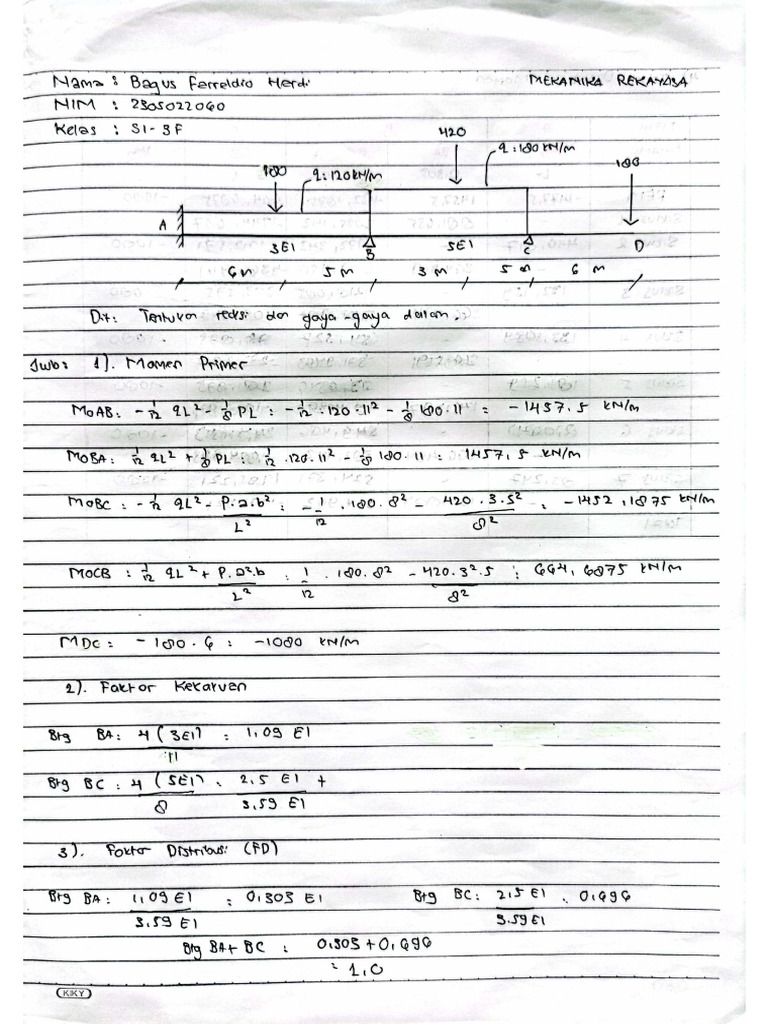 Nama : Bagus Ferreldio Herdi MEKANIKA REKAYASA
NIM : 2305022060
Kelas : SI-3F
420
q : 180 kN/m
180 q : 120 kN/m 180
A B C D
3EI 5EI
6 m 5 m 3 m 5 m 6 m
Dit : Tentukan reaksi dan gaya-gaya dalam.
Jwb : 1). Momen Primer
MoAB : - 1/12 qL² - 1/8 PL : - 1/12 . 120 . 11² - 1/8 180 . 11 : - 1457,5 kN/m
MoBA : 1/12 qL² + 1/8 PL : 1/12 . 120 . 11² - 1/8 180 . 11 : 1457,5 kN/m
MoBC : - 1/12 qL² - P.a.b²/L² : - 1/12 . 180 . 8² - 420 . 3 . 5²/8² : - 1452,1875 kN/m
MoCB : 1/12 qL² + P.a².b/L² : 1/12 . 180 . 8² - 420 . 3² . 5/8² : 664,6875 kN/m
MDC : - 180 . 6 : - 1080 kN/m
2). Faktor Kekakuen
Btg BA : 4 (3EI)/11 : 1,09 EI
Btg BC : 4 (5EI)/8 : 2,5 EI +
3,59 EI
3). Faktor Distribusi (FD)
Btg BA : 1,09 EI/3,59 EI : 0,303 EI Btg BC : 2,5 EI/3,59 EI : 0,696
Btg BA + BC : 0,303 + 0,696
: 1,0
KIKY